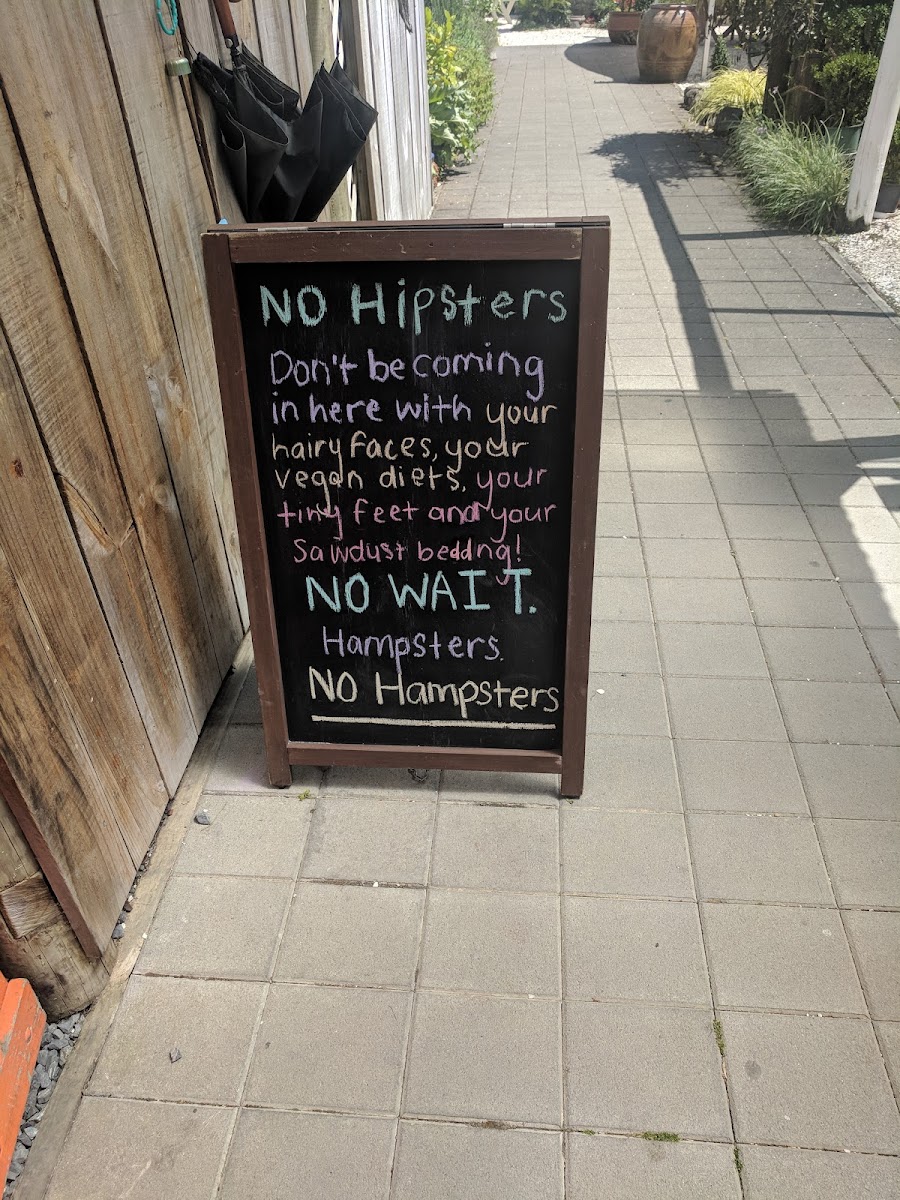 NO Hipsters
Don't be coming
in here with your
hairy faces, your
vegan diets, your
tiny feet and your
Sawdust bedding!
NO WAIT.
Hampsters.
NO Hampsters